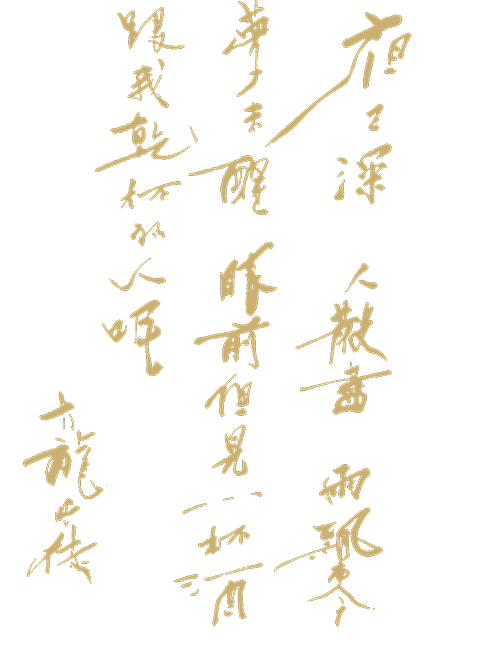 夜已深 人散盡 雨飄零
夢未醒 眼前但見一杯酒
跟我乾杯的人呢
古龍